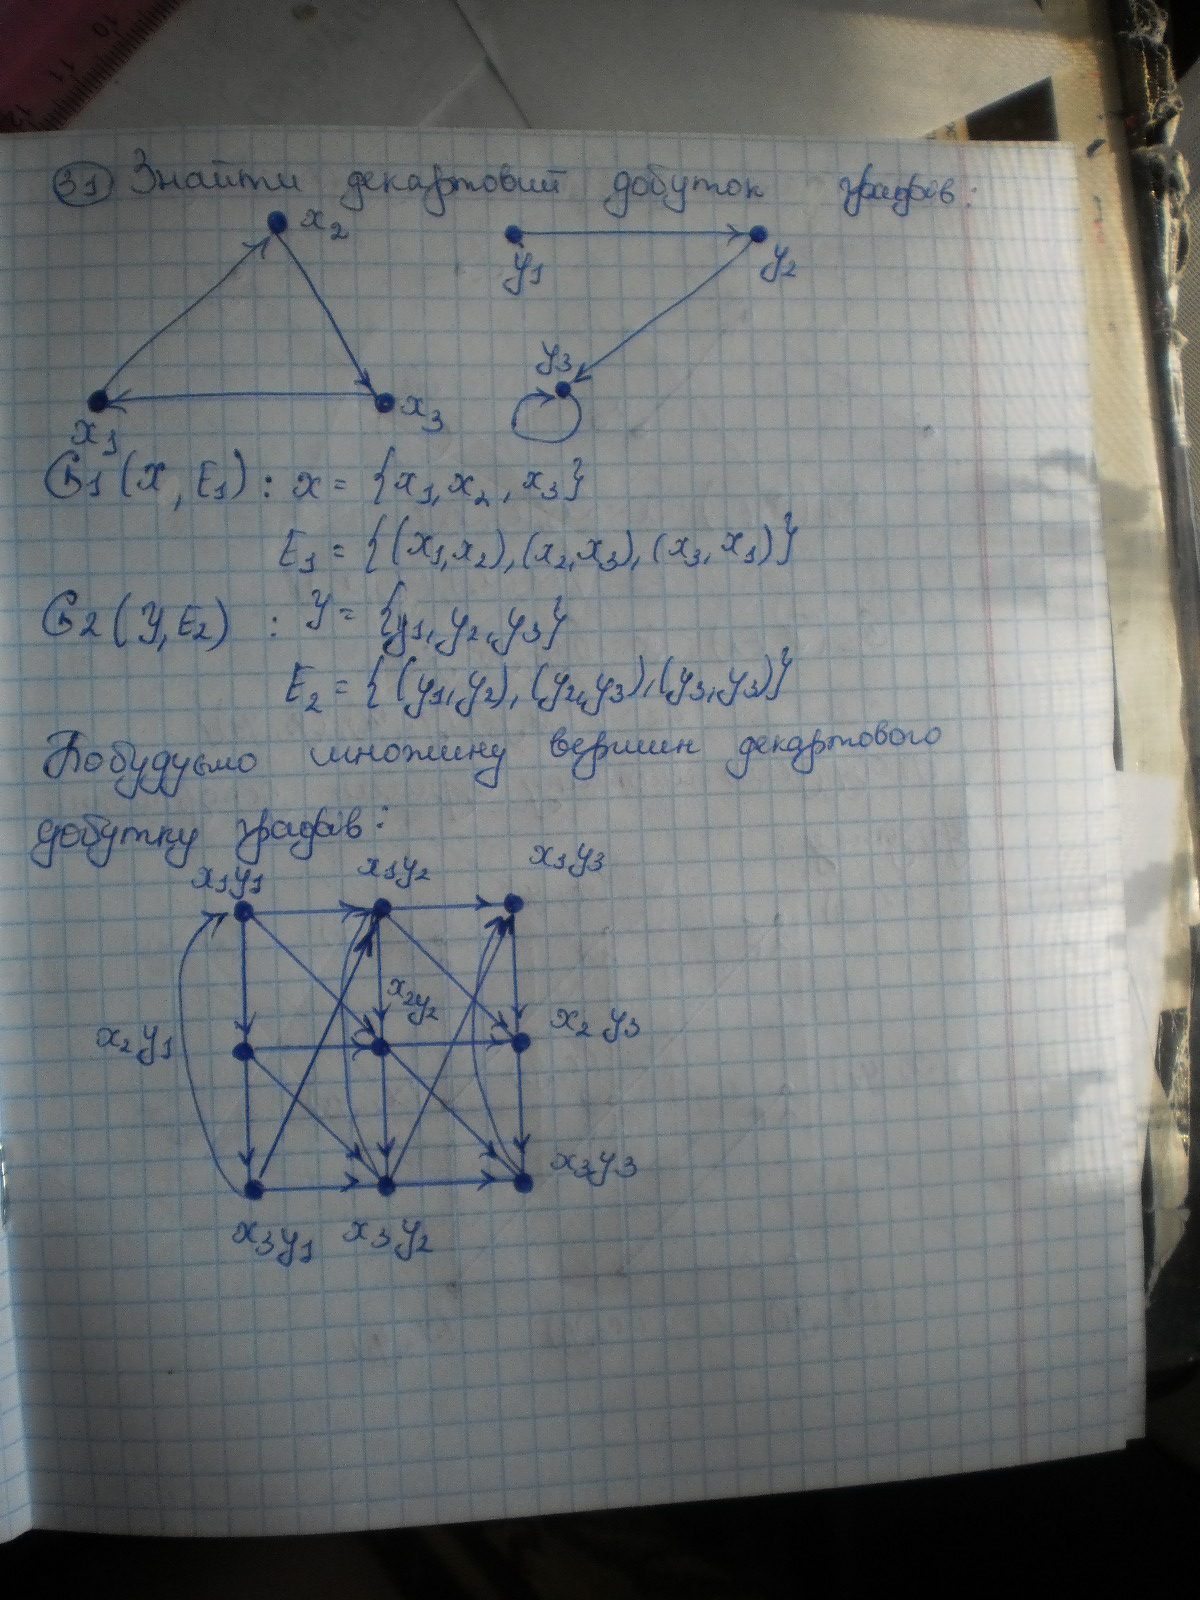 31 Знайти декартовий добуток графів:
x2
y1
y2
y3
x1
x3
G1(X, E1): x = {x1, x2, x3}
E1 = {(x1,x2), (x2,x3), (x3,x1)}
G2(Y,E2) : Y = {y1, y2, y3}
E2 = {(y1,y2), (y2,y3), (y3,y3)}
Побудуємо множину вершин декартового
добутку графів:
x1y1 x1y2 x1y3
x2y2
x2y1 x2y3
x3y3
x3y1 x3y2
10
11
12